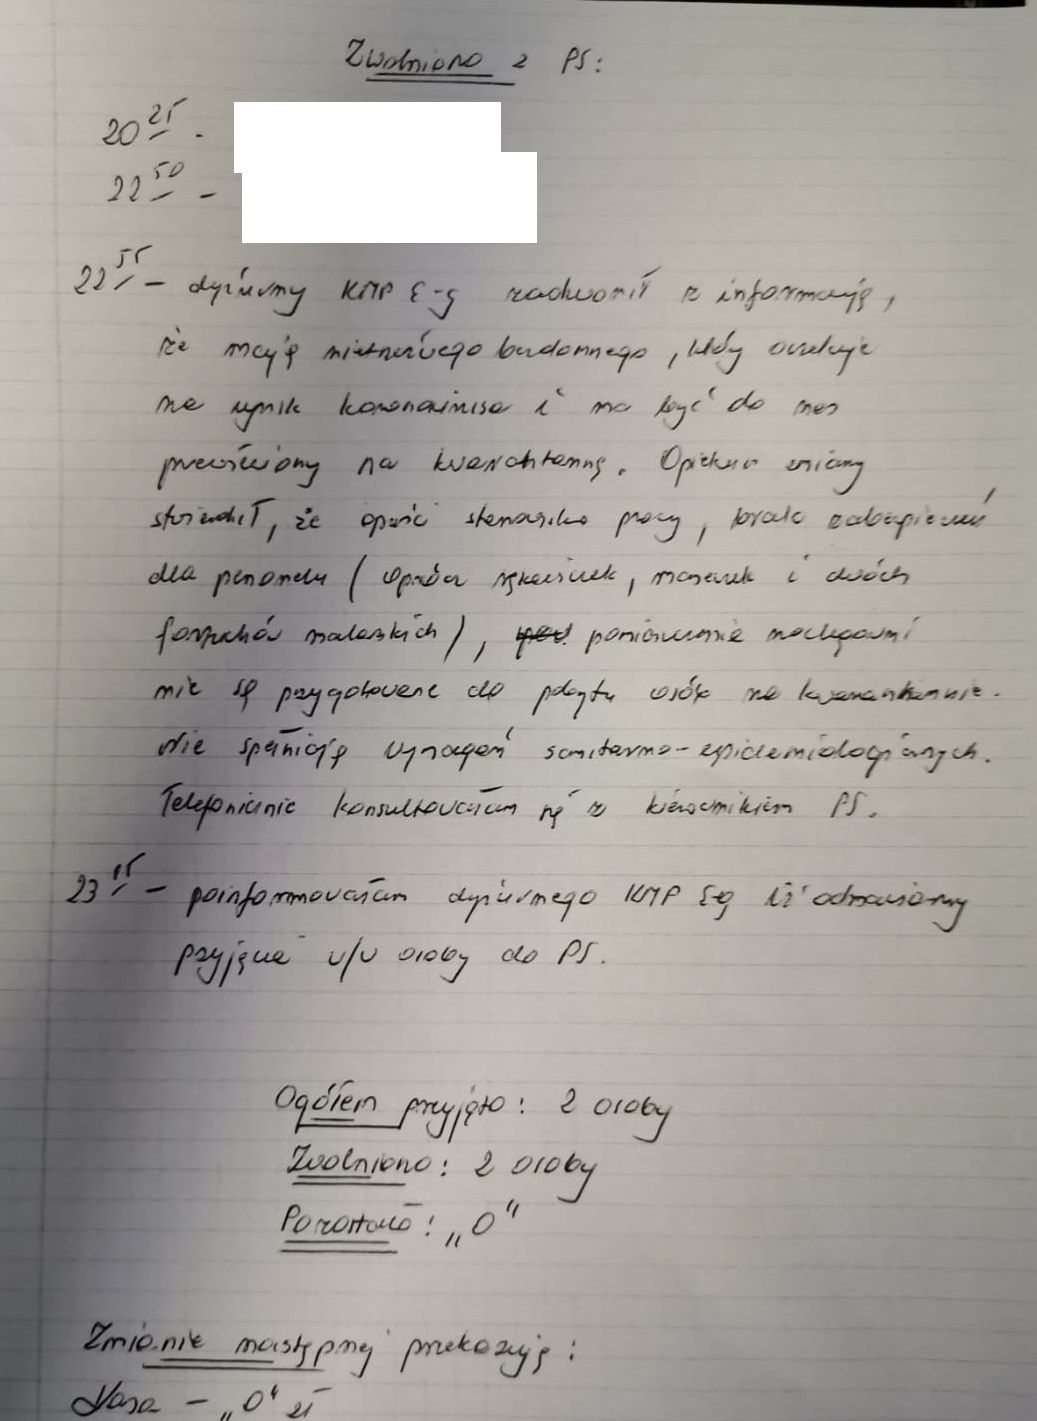 Zwolniono z PS:
20 25 -
22 50 -
22 55 - dyżurny KMP E-g zadzwonił z informacją,
że mają nietrzeźwego bezdomnego, który oczekuje
na wynik koronawirusa i ma być do nas
przewieziony na kwarantannę. Opiekun zmiany
stwierdził, że oprócz stanowiska pracy, brak zabezpieczeń
dla personelu (oprócz rękawiczek, maseczek i dwóch
fartuchów malarskich), pomieszczenia noclegowni
nie są przygotowane do pobytu osób na kwarantannie.
Nie spełniają wymagań sanitarno-epidemiologicznych.
Telefonicznie konsultowałam się z kierownikiem PS.
23 15 - poinformowałam dyżurnego KMP E-g iż odmawiamy
przyjęcia w/w osoby do PS.
Ogółem przyjęto: 2 osoby
Zwolniono: 2 osoby
Pozostało: „0"
Zmianie następnej przekazuję:
Kasa - „0" zł